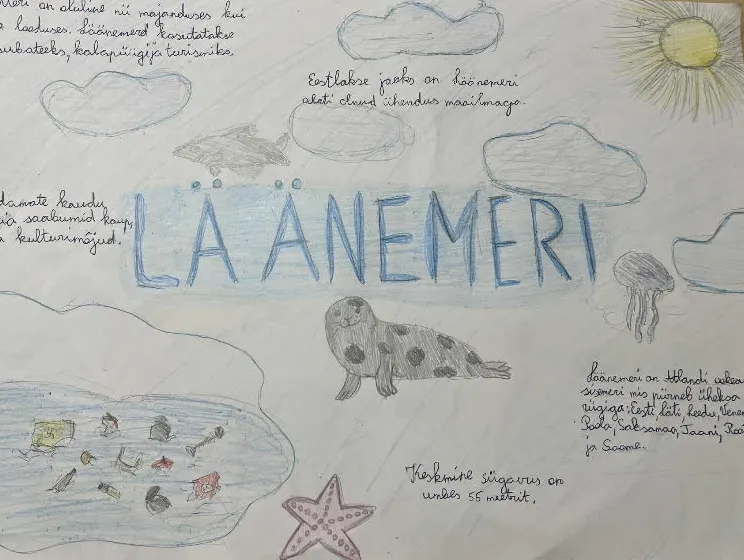 meri on oluline nii majanduses kui
looduses. Läänemerd kasutatakse
kalapüügi ja turismiks.
Eestlakse jaoks on Läänemeri
alati olnud ühendus maailmaga.
kaudu
saabunud kaup,
kultuurimõjud.
LÄÄNEMERI
Läänemeri on Atlandi
sisemeri mis piirneb üheksa
riigiga: Eesti, Läti, Leedu, Venem
Poola, Saksamaa, Taani,
ja Soome.
Keskmine sügavus on
umbes 55 meetrit.